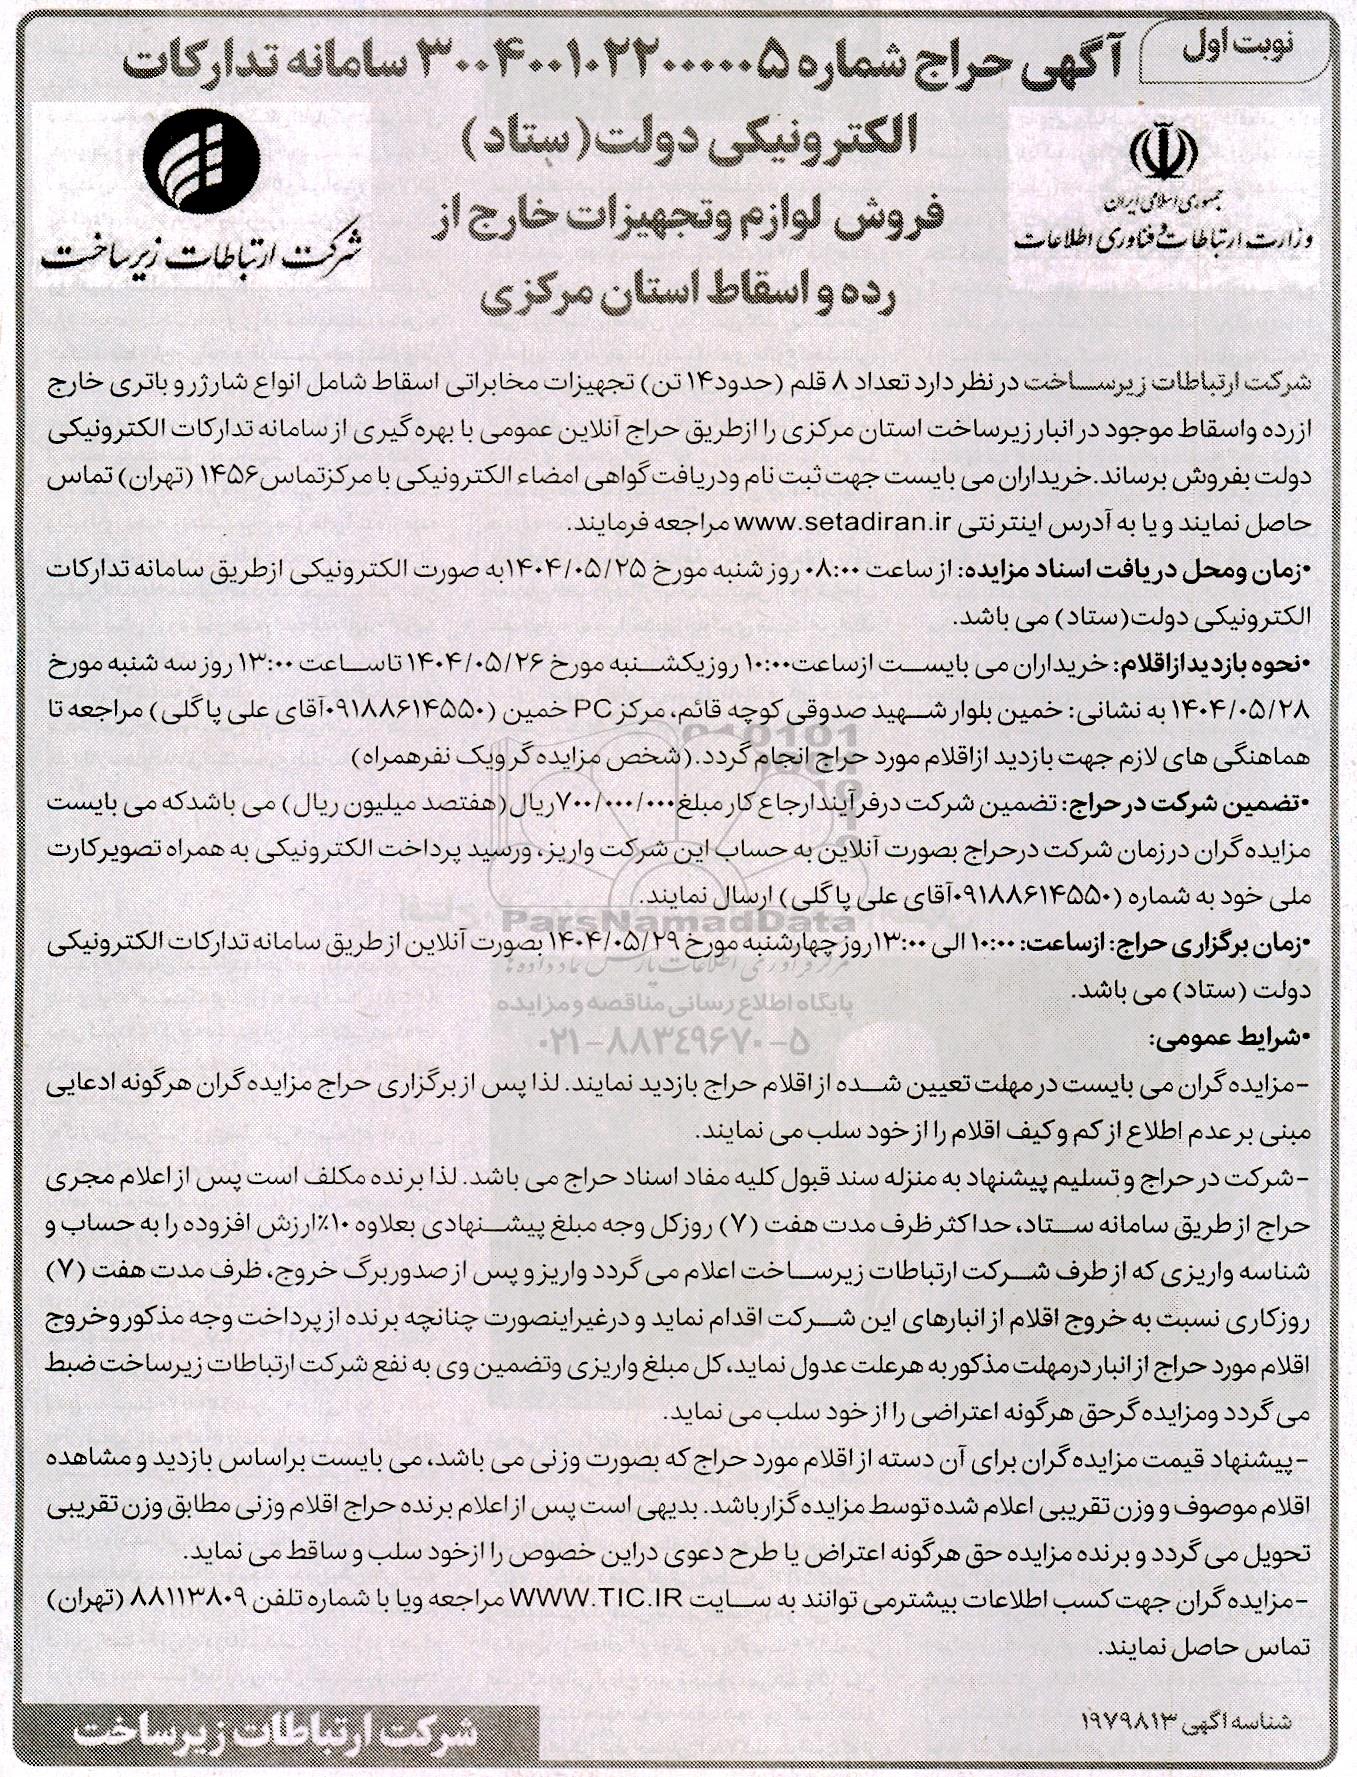 نوبت اول
آگهی حراج شماره ۳۰۰۴۰۰۱۰۲۲۰۰۰۰۰۵ سامانه تدارکات
الکترونیکی دولت (ستاد)
فروش لوازم وتجهیزات خارج از
رده و اسقاط استان مرکزی
جمهوری اسلامی ایران
وزارت ارتباطات و فناوری اطلاعات
شرکت ارتباطات زیرساخت
شرکت ارتباطات زیرساخت در نظر دارد تعداد ۸ قلم (حدود۱۴ تن) تجهیزات مخابراتی اسقاط شامل انواع شارژر و باتری خارج
از رده واسقاط موجود در انبار زیرساخت استان مرکزی را ازطریق حراج آنلاین عمومی با بهره گیری از سامانه تدارکات الکترونیکی
دولت بفروش برساند.خریداران می بایست جهت ثبت نام ودریافت گواهی امضاء الکترونیکی با مرکزتماس۱۴۵۶ (تهران) تماس
حاصل نمایند و یا به آدرس اینترنتی www.setadiran.ir مراجعه فرمایند.
•زمان ومحل دریافت اسناد مزایده: از ساعت ۰۸:۰۰ روز شنبه مورخ ۱۴۰۴/۰۵/۲۵به صورت الکترونیکی ازطریق سامانه تدارکات
الکترونیکی دولت(ستاد) می باشد.
•نحوه بازدیدازاقلام: خریداران می بایست ازساعت۱۰:۰۰ روزیکشنبه مورخ ۱۴۰۴/۰۵/۲۶ تاساعت ۱۳:۰۰ روز سه شنبه مورخ
۱۴۰۴/۰۵/۲۸ به نشانی: خمین بلوار شهید صدوقی کوچه قائم، مرکز PC خمین (۰۹۱۸۸۶۱۴۵۵۰آقای علی پاگلی) مراجعه تا
هماهنگی های لازم جهت بازدید ازاقلام مورد حراج انجام گردد.(شخص مزایده گر ویک نفرهمراه)
•تضمین شرکت درحراج: تضمین شرکت درفرآیندارجاع کار مبلغ۷۰۰/۰۰۰/۰۰۰ریال(هفتصد میلیون ریال) می باشدکه می بایست
مزایده گران درزمان شرکت درحراج بصورت آنلاین به حساب این شرکت واریز، ورسید پرداخت الکترونیکی به همراه تصویرکارت
ملی خود به شماره (۰۹۱۸۸۶۱۴۵۵۰آقای علی پاگلی) ارسال نمایند.
•زمان برگزاری حراج: ازساعت: ۱۰:۰۰ الی ۱۳:۰۰روز چهارشنبه مورخ ۱۴۰۴/۰۵/۲۹ بصورت آنلاین از طریق سامانه تدارکات الکترونیکی
دولت (ستاد) می باشد.
ParsNamadData
مرکز فرآوری اطلاعات پارس نماد داده ها
پایگاه اطلاع رسانی مناقصه و مزایده
۰۲۱-۸۸۳۴۹۶۷۰-۵
•شرایط عمومی:
-مزایده گران می بایست در مهلت تعیین شده از اقلام حراج بازدید نمایند. لذا پس از برگزاری حراج مزایده گران هرگونه ادعایی
مبنی بر عدم اطلاع از کم و کیف اقلام را از خود سلب می نمایند.
-شرکت در حراج و تسلیم پیشنهاد به منزله سند قبول کلیه مفاد اسناد حراج می باشد. لذا برنده مکلف است پس از اعلام مجری
حراج از طریق سامانه ستاد، حداکثر ظرف مدت هفت (۷) روزکل وجه مبلغ پیشنهادی بعلاوه ۱۰٪ارزش افزوده را به حساب و
شناسه واریزی که از طرف شرکت ارتباطات زیرساخت اعلام می گردد واریز و پس از صدور برگ خروج، ظرف مدت هفت (۷)
روزکاری نسبت به خروج اقلام از انبارهای این شرکت اقدام نماید و درغیراینصورت چنانچه برنده از پرداخت وجه مذکور وخروج
اقلام مورد حراج از انبار درمهلت مذکور به هرعلت عدول نماید، کل مبلغ واریزی وتضمین وی به نفع شرکت ارتباطات زیرساخت ضبط
می گردد ومزایده گرحق هرگونه اعتراضی را از خود سلب می نماید.
-پیشنهاد قیمت مزایده گران برای آن دسته از اقلام مورد حراج که بصورت وزنی می باشد، می بایست براساس بازدید و مشاهده
اقلام موصوف و وزن تقریبی اعلام شده توسط مزایده گزار باشد. بدیهی است پس از اعلام برنده حراج اقلام وزنی مطابق وزن تقریبی
تحویل می گردد و برنده مزایده حق هرگونه اعتراض یا طرح دعوی دراین خصوص را ازخود سلب و ساقط می نماید.
-مزایده گران جهت کسب اطلاعات بیشترمی توانند به سایت WWW.TIC.IR مراجعه ویا با شماره تلفن ۸۸۱۱۳۸۰۹ (تهران)
تماس حاصل نمایند.
شناسه آگهی ۱۹۷۹۸۱۳
شرکت ارتباطات زیرساخت